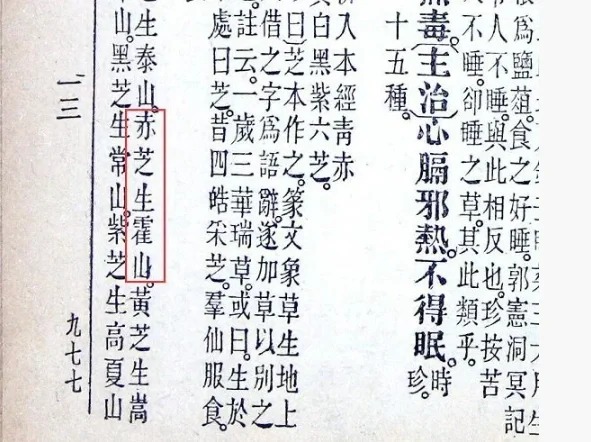 爲鹽蒩食之好睡。郭憲洞冥記
人不睡。與此相反也。珍按苦
不睡。卻睡之草。其此類乎。
毒。主治心膈邪熱。不得眠。時珍。
十五種。
入本經青赤
白黑紫六芝。
曰芝本作之。篆文象草生地上
借之字爲語辭。遂加草以別之
註云。一歲三華瑞草。或曰。生於
處曰芝。昔四皓采芝。羣仙服食。
芝生泰山。赤芝生霍山。黃芝生嵩
山。黑芝生常山。紫芝生高夏山
一三
九七七